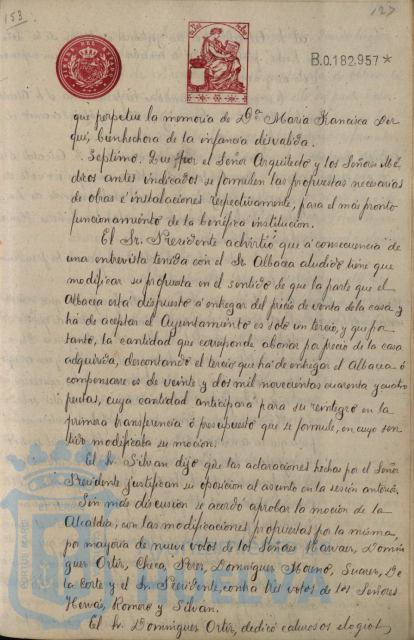 153
127
B.0.182.957*
que perpetue la memoria de Dª Maria Francisca Der
qui, bienhechora de la infancia desvalida.
Septimo. Que por el Señor Arquitecto y los Señores Mé-
dicos antes indicados se formulen las propuestas necesarias
de obras é instalaciones respectivamente, para el mas pronto
funcionamiento de la benéfica institución.
El Sr. Presidente advirtió que á consecuencia de
una entrevista tenida con el Sr. Albacea aludido tiene que
modificar su propuesta en el sentido de que la parte que el
Albacea está dispuesto á entregar del precio de venta de la casa y
há de aceptar el Ayuntamiento es solo un tercio, y que por
tanto, la cantidad que corresponde abonar por precio de la casa
adquirida, descontando el tercio que há de entregar el Albacea ó
compensarse es de veinte y dos mil novecientas cuarenta y cuatro
pesetas, cuya cantidad anticipará para su reintegro en la
primera transferencia ó presupuesto que se formule, en cuyo sen-
tido modificaba su mocion.
El Sr. Silvan dijo que las aclaraciones hechas por el Señor
Presidente justifican su oposición al asunto en la sesión anterior.
Sin mas discusion se acordó aprobar la mocion de la
Alcaldia, con las modificaciones propuestas por la misma,
por mayoría de nueve votos de los Señores Narvaez, Domin
guez Ortiz, Checa, Perez, Dominguez Moreno, Suarez, De
la Corte y el Sr. Presidente, contra tres votos de los Señores
Hervás, Romero y Silvan.
El Sr. Dominguez Ortiz, dedicó calurosos elogios